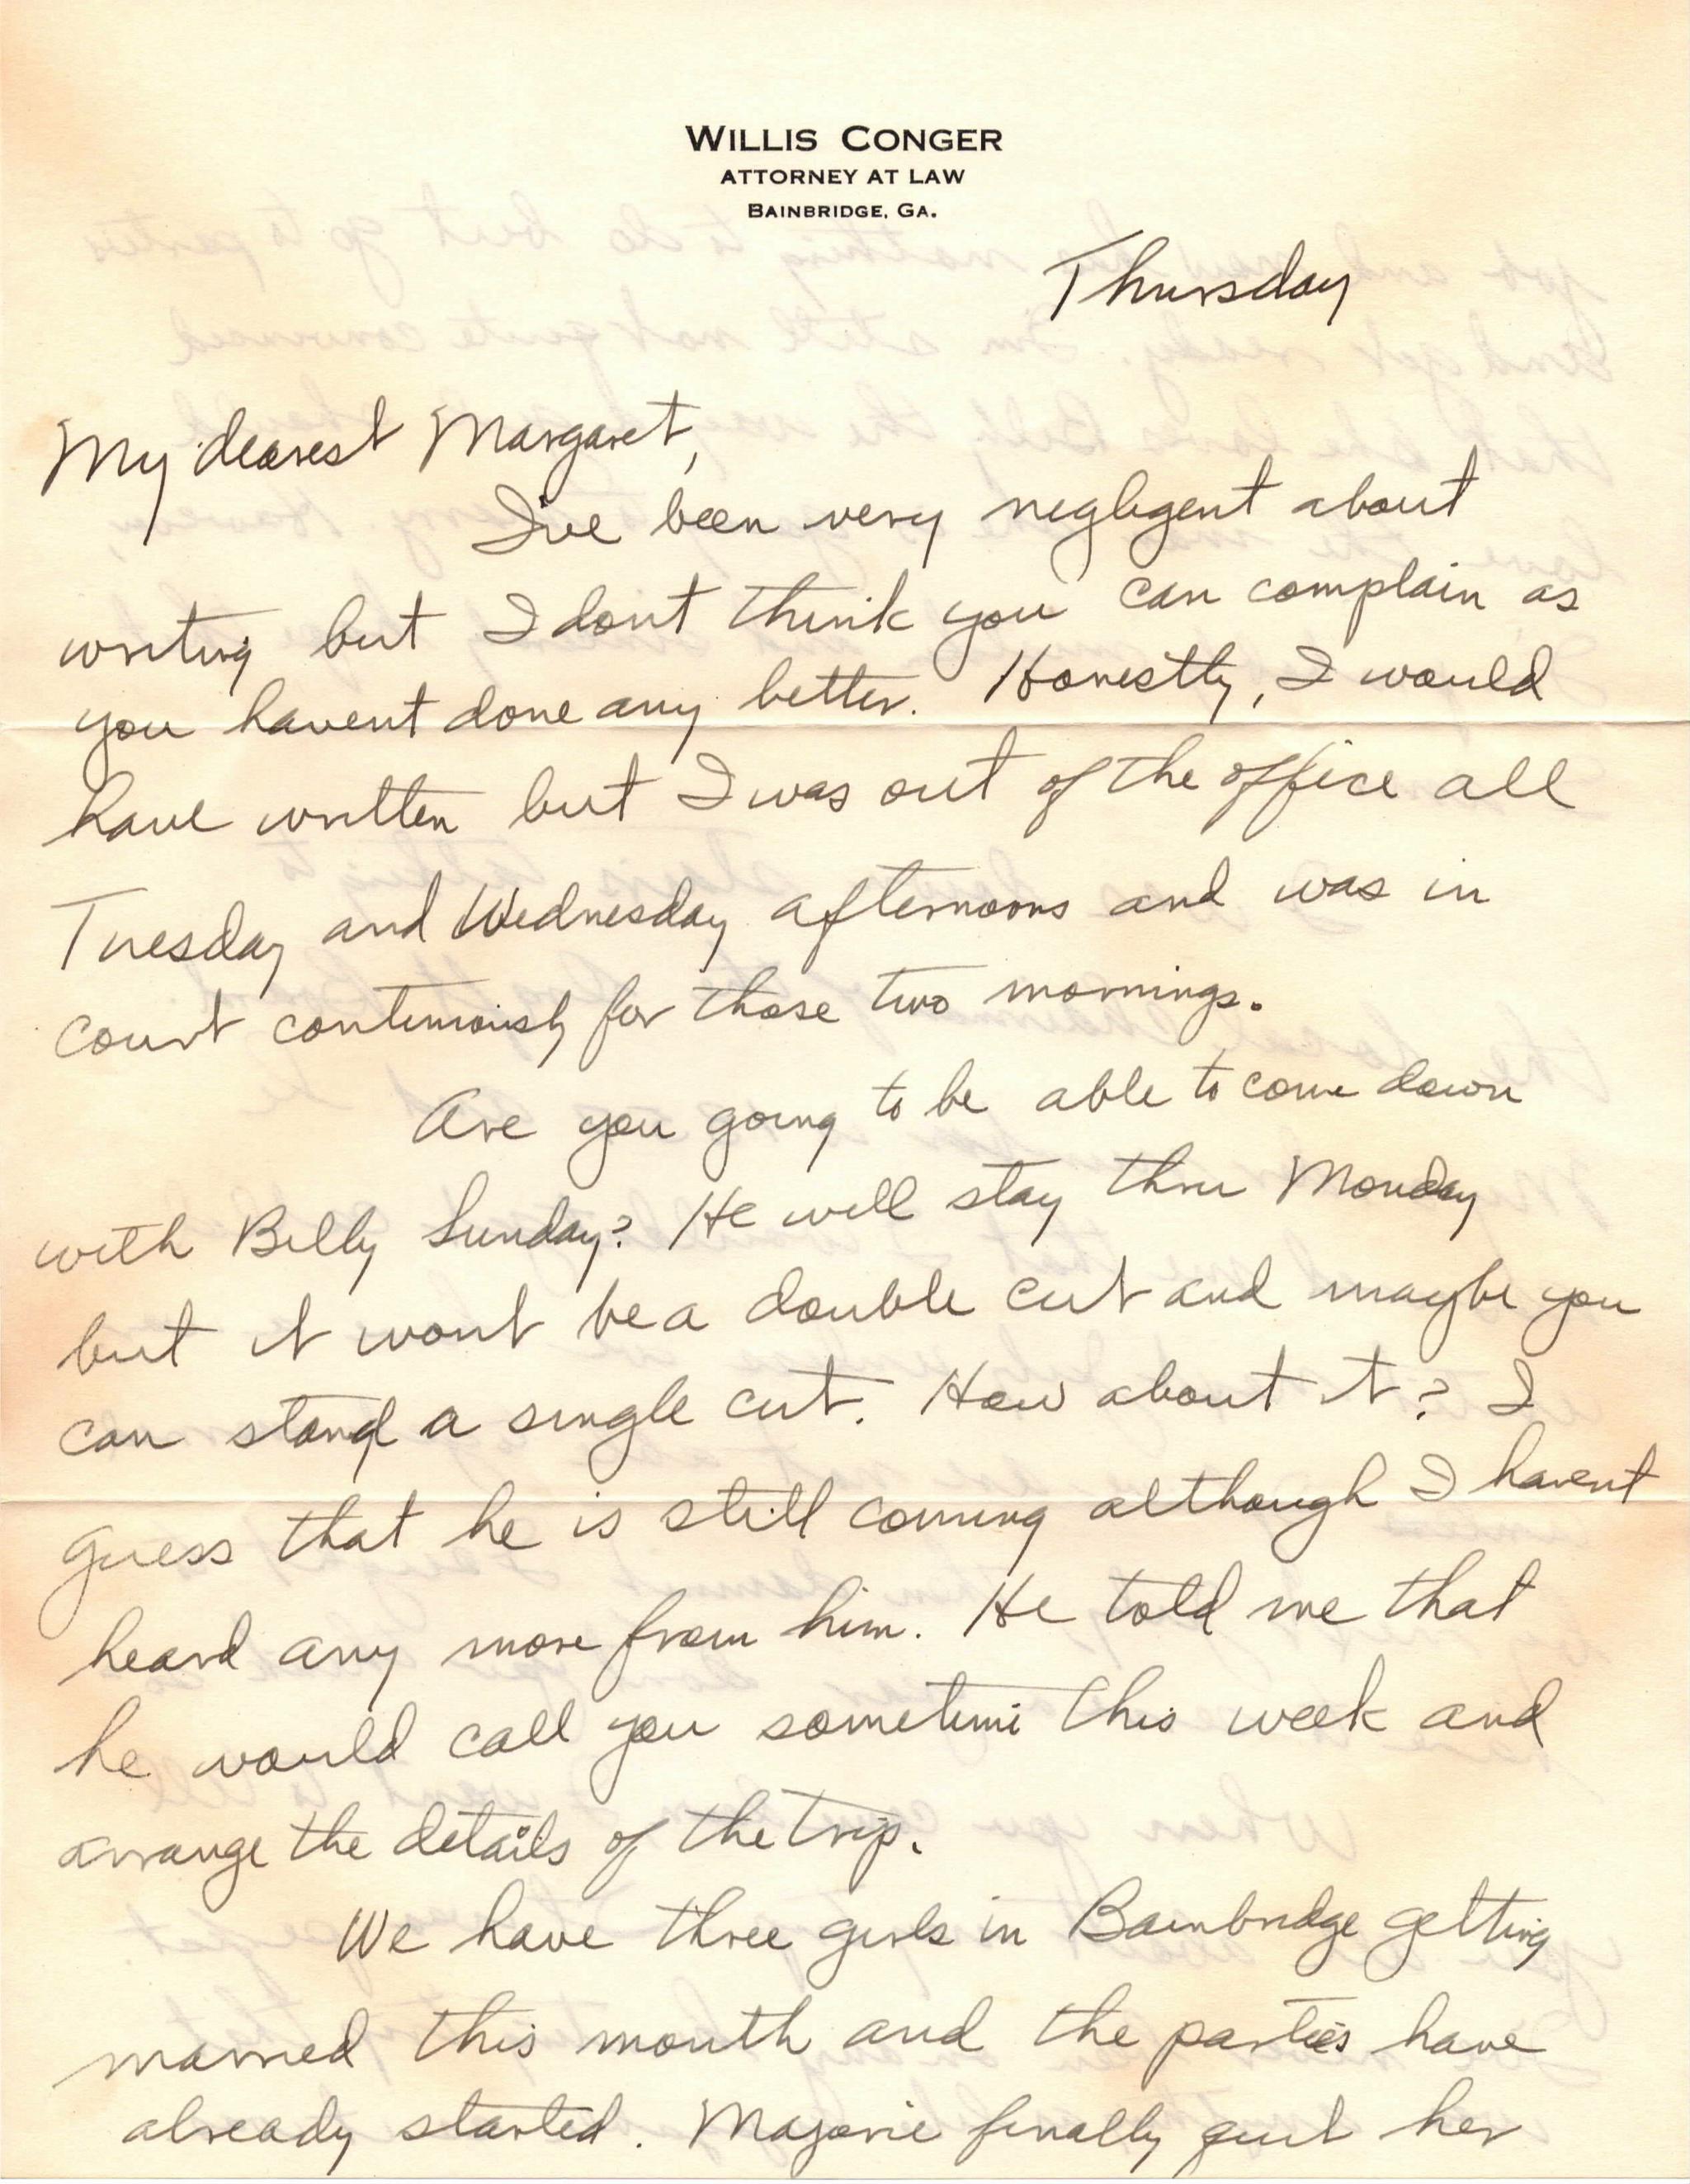 WILLIS CONGER
ATTORNEY AT LAW
BAINBRIDGE, GA.
Thursday
My dearest Margaret,
I've been very negligent about
writing but I dont think you can complain as
you havent done any better. Honestly, I would
have written but I was out of the office all
Tuesday and Wednesday afternoons and was in
court continuously for those two mornings.
Are you going to be able to come down
with Billy Sunday? He will stay thru Monday
but it wont be a double cut and maybe you
can stand a single cut. How about it? I
guess that he is still coming although I havent
heard any more from him. He told me that
he would call you sometime this week and
arrange the details of the trip.
We have three girls in Bainbridge getting
married this month and the parties have
already started. Majorie finally quit her